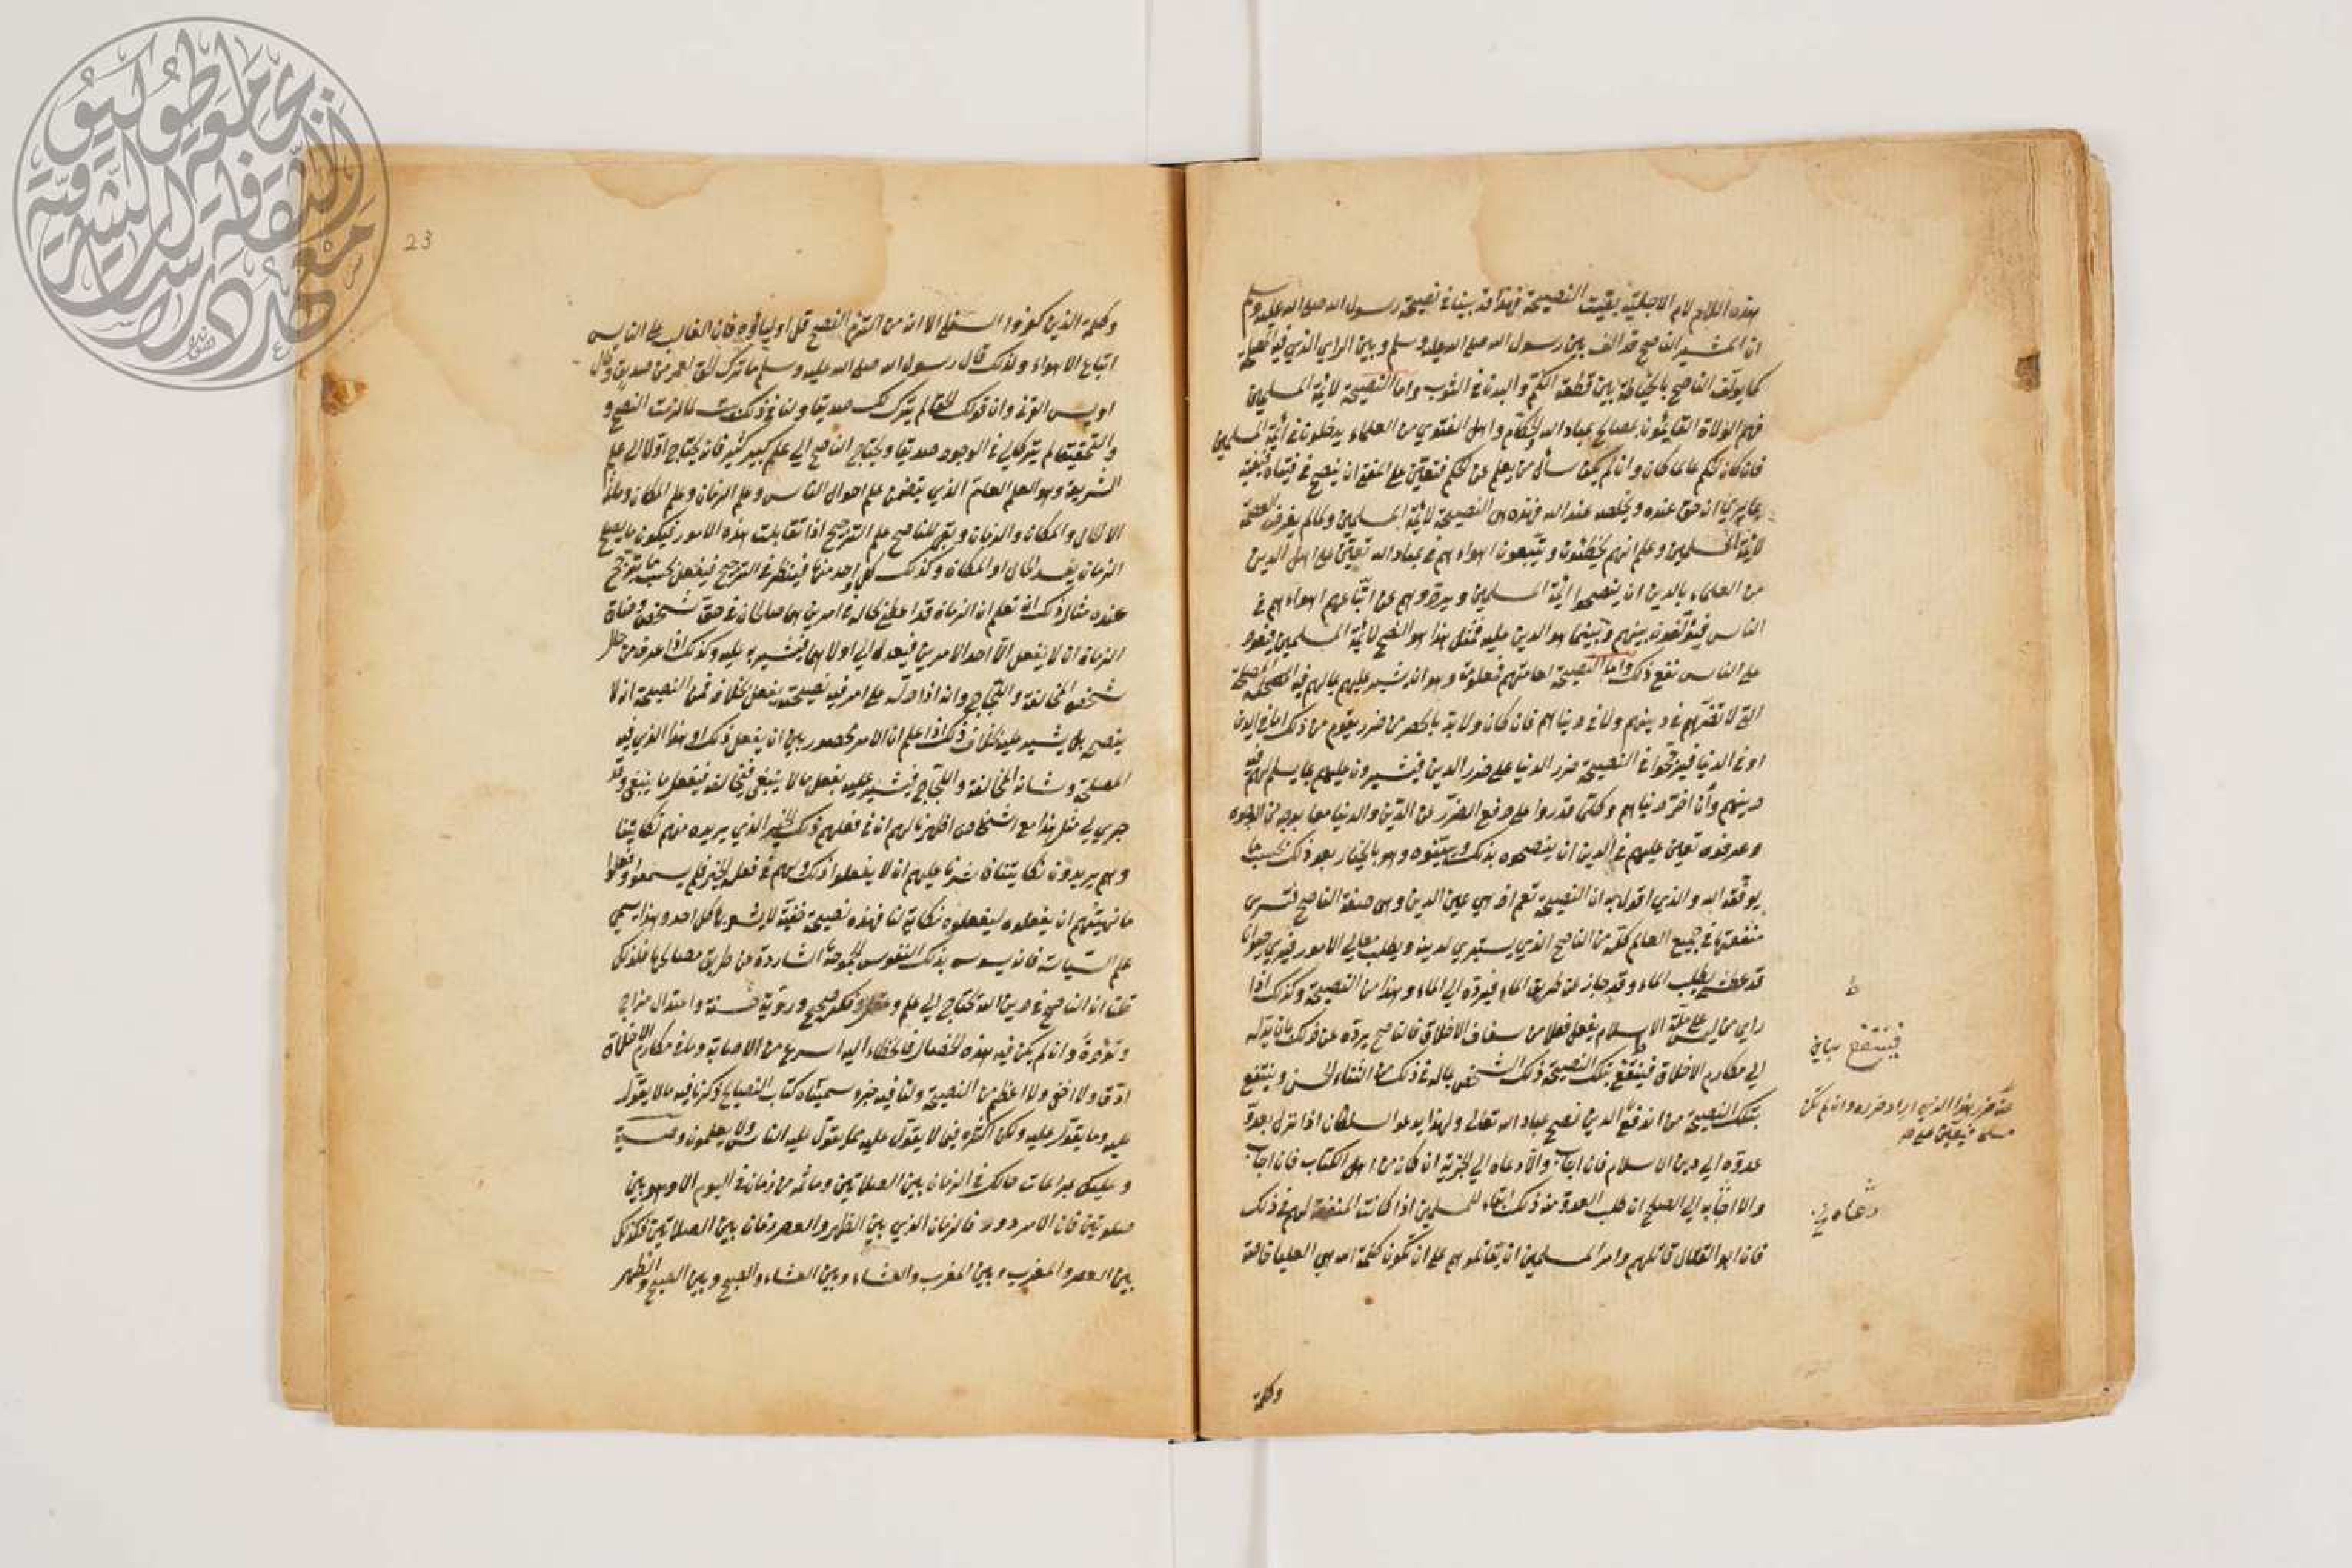 هذه اللام لام الاجلية بقيت النصيحة فهذا قد بينا في نصيحة رسول الله صلى الله عليه وسلم
ان المشير الناصح قد الف بين رسول الله صلى الله عليه وسلم وبين الراي الذي فيه المصلحة
كما يؤلف الناصح بالخياطة بين قطعة الكم والبدن في الثوب واما النصيحة لائمة المسلمين
فهم الولاة القايمون بمصالح عباد الله والحكام واهل الفتوى من العلماء يدخلون في أيمة المسلمين
فان كان الحاكم عالما كان وان لم يكن سأل من يعلم عن الحكم فتعين على المفتي ان ينصح في فتياه
بما يرى انه حق عنده ويخلصه عند الله فهذه هي النصيحة لائمة المسلمين ولما لم يفرض العصمة
لائمة المسلمين وعلم انهم يخطئون ويتبعون اهواءهم في عباد الله تعين على اهل الدين
من العلماء بالدين ان ينصحوا ائمة المسلمين ويردوهم عن اتباعهم اهواءهم في
الناس فيؤلفون بينهم وبين ما هو الدين عليه فمثل هذا هو النصح لائمة المسلمين فيعود
على الناس نفع ذلك واما النصيحة لعامتهم فمعلومة وهو ان يشير عليهم بما لهم فيه المصلحة
التي لا تضرهم في دينهم ولا في دنياهم فان كان ولا بد بالحصر من ضرر يقوم من ذلك اما في الدين
او في الدنيا فيرجحوا في النصيحة ضرر الدنيا على ضرر الدين فيشيرون عليهم بما يسلم لهم فيه
دينهم وان اضر دنياهم وكلما قدروا على دفع الضرر عن الدين والدنيا معا بوجه من الوجوه
وعرفوه تعين عليهم في الدين ان ينصحوه بذلك ويبينوه وهو بالخيار بعد ذلك بحسب ما
يوفقه الله والذي اقول به ان النصيحة تعم اذ هي عين الدين وهي صفة الناصح فتسري
منفعتها في جميع العالم كله من الناصح الذي يستبرئ لدينه ويطلب معالي الامور فيرى حيوانا
قد عطش يطلب الماء وقد جاز عن طريق الماء فيرده الى الماء وهذا من النصيحة وكذلك اذا
راى من ليس على ملة الاسلام يفعل فعلا من سفاف الاخلاق فالناصح يرده عن ذلك بما يدله
الى مكارم الاخلاق فينتفع بتلك النصيحة ذلك الشخص بما له في ذلك من الثناء الحسن وينتفع
بتلك النصيحة من اندفع الدين نصح عباد الله تعالى ولهذا يدعو السلطان اذا نزل بعدو
عدوه الى دين الاسلام فان اجاب والا دعاه الى الجزية ان كان من اهل الكتاب فان اجاب
والا اجابه الى الصلح ان طلب العدو منه ذلك ابقاء للمسلمين اذا كانت المنفعة لهم في ذلك
فان ابوا القتال قاتلهم وامر المسلمين ان يقاتلوهم على ان تكون كلمة الله هي العليا خاصة
وكلمة
ط
فينتفع بيان
عنه ضرر هذا الذي اراد ضرره وان لم تكن
مسلم فيتعين على
دعاه
23
وكلمة الذين كفروا السفلى الا انه من التزم النصح قل اولياؤه فان الغالب على الناس
اتباع الاهواء ولذلك قال رسول الله صلى الله عليه وسلم ما ترك الحق لعمر من صديق وقال
اويس القرني وان قولك الحق لم يترك لك صديقا ولنا في ذلك لما لزمت النصح و
والتحقيقا لم يتركا لي في الوجود صديقا ويحتاج الناصح الى علم كبير كثير فانه يحتاج اولا الى علم
الشريعة وهو العلم العام الذي يتضمن علم احوال الناس وعلم الزمان وعلم المكان
الا الحال والمكان والزمان وبقي للناصح علم الترجيح اذا تقابلت هذه الامور فيكون ما يصلح
الزمان يفسد الحال او المكان وكذلك كل واحد منها فينظر في الترجيح فيفعل بحسب ما ترجح
عنده مثال ذلك ان تعلم ان الزمان قد اعطى بحاله في امرين هما صالحان في حق شخص وضاق
الزمان ان لا يفعل الا احد الامرين فيعدل الى اولاهما فيشير به عليه وكذلك اذا عرف من حال
شخص المخالفة واللجاج وانه اذا دله على امر فيه نصيحته يفعل بخلافه فمن النصيحة ان لا
ينصحه بل يشير عليه بخلاف ذلك اذا علم ان الامر محصور بين ان يفعل ذلك او هذا الذي فيه
المصلحة وشانه المخالفة واللجاج فيشير عليه بفعل ما لا ينبغي فيخالفه فيفعل ما ينبغي وقد
جرى لي مثل هذا مع اشخاص اظهرنا لهم ان في فعلهم ذلك الخير الذي يريده منهم نكايتنا
وهم يريدون نكايتنا فاشرنا عليهم ان لا يفعلوا ذلك ولهم في فعله الخير فلم يسمعوا وفعلوا
ما نهيتهم ان يفعلوه ليفعلوه نكاية لنا فهذه نصيحة خفية لا يشعر بها كل احد وهذا يسمى
علم السياسة فانه يسوس بذلك النفوس الجموحة الشاردة عن طريق مصالحها فلذلك
قلنا ان الناصح في دين الله يحتاج الى علم وعقل وفكر صحيح وروية حسنة واعتدال مزاج
وتؤدة وان لم يكن فيه هذه الخصال فالخطاء اليه اسرع من الاصابة وما في مكارم الاخلاق
ادق ولا اخفى ولا اعظم من النصيحة ولنا فيه جزء سميناه كتاب النصايح ذكرنا فيه ما لا يعول
عليه وما يعول عليه ولكن اكثره فيما لا يعول عليه مما يعول عليه الناس ولا يعلمون وصية
وعليك بمراعات حالك في الزمان بين الصلاتين وما ثم من زمان في اليوم الا وهو بين
صلوتين فان الامر دور فالزمان الذي بين الظهر والعصر زمان بين الصلاتين فكذلك
بين العصر والمغرب وبين المغرب والعشاء وبين العشاء والصبح وبين الصبح والظهر